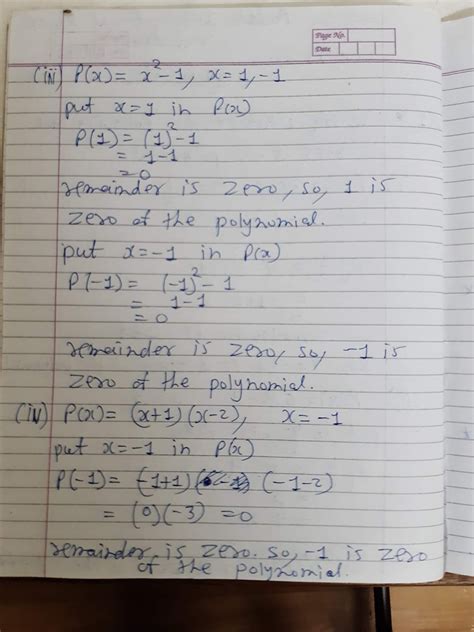 Page No.
Date
(iii) P(x) = x² - 1, x = 1, -1
put x = 1 in P(x)
P(1) = (1)² - 1
= 1 - 1
= 0
remainder is zero, so, 1 is
zero of the polynomial.
put x = -1 in P(x)
P(-1) = (-1)² - 1
= 1 - 1
= 0
remainder is zero, so, -1 is
zero of the polynomial.
(iv) P(x) = (x+1)(x-2), x = -1
put x = -1 in P(x)
P(-1) = (-1+1) (-1-2)
= (0)(-3) = 0
remainder is zero. so, -1 is zero
of the polynomial.